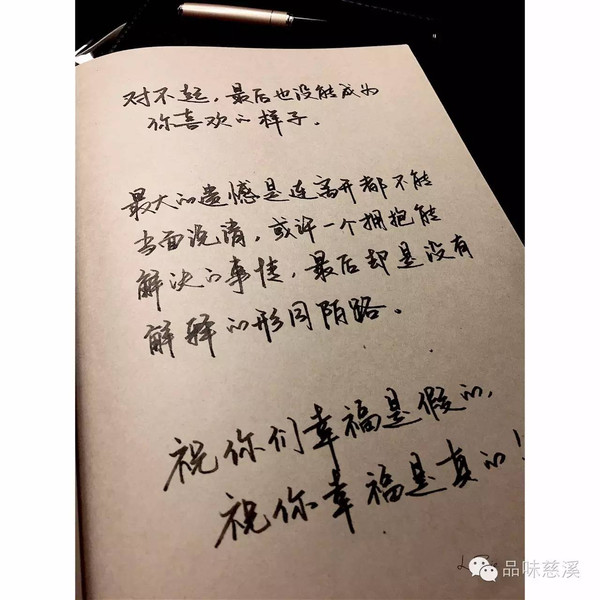 对不起，最后也没能成为
你喜欢的样子．
最大的遗憾是连离开都不能
当面说清，或许一个拥抱能
解决的事情，最后却是没有
解释的形同陌路。
祝你们幸福是假的，
祝你幸福是真的！
品味慈溪